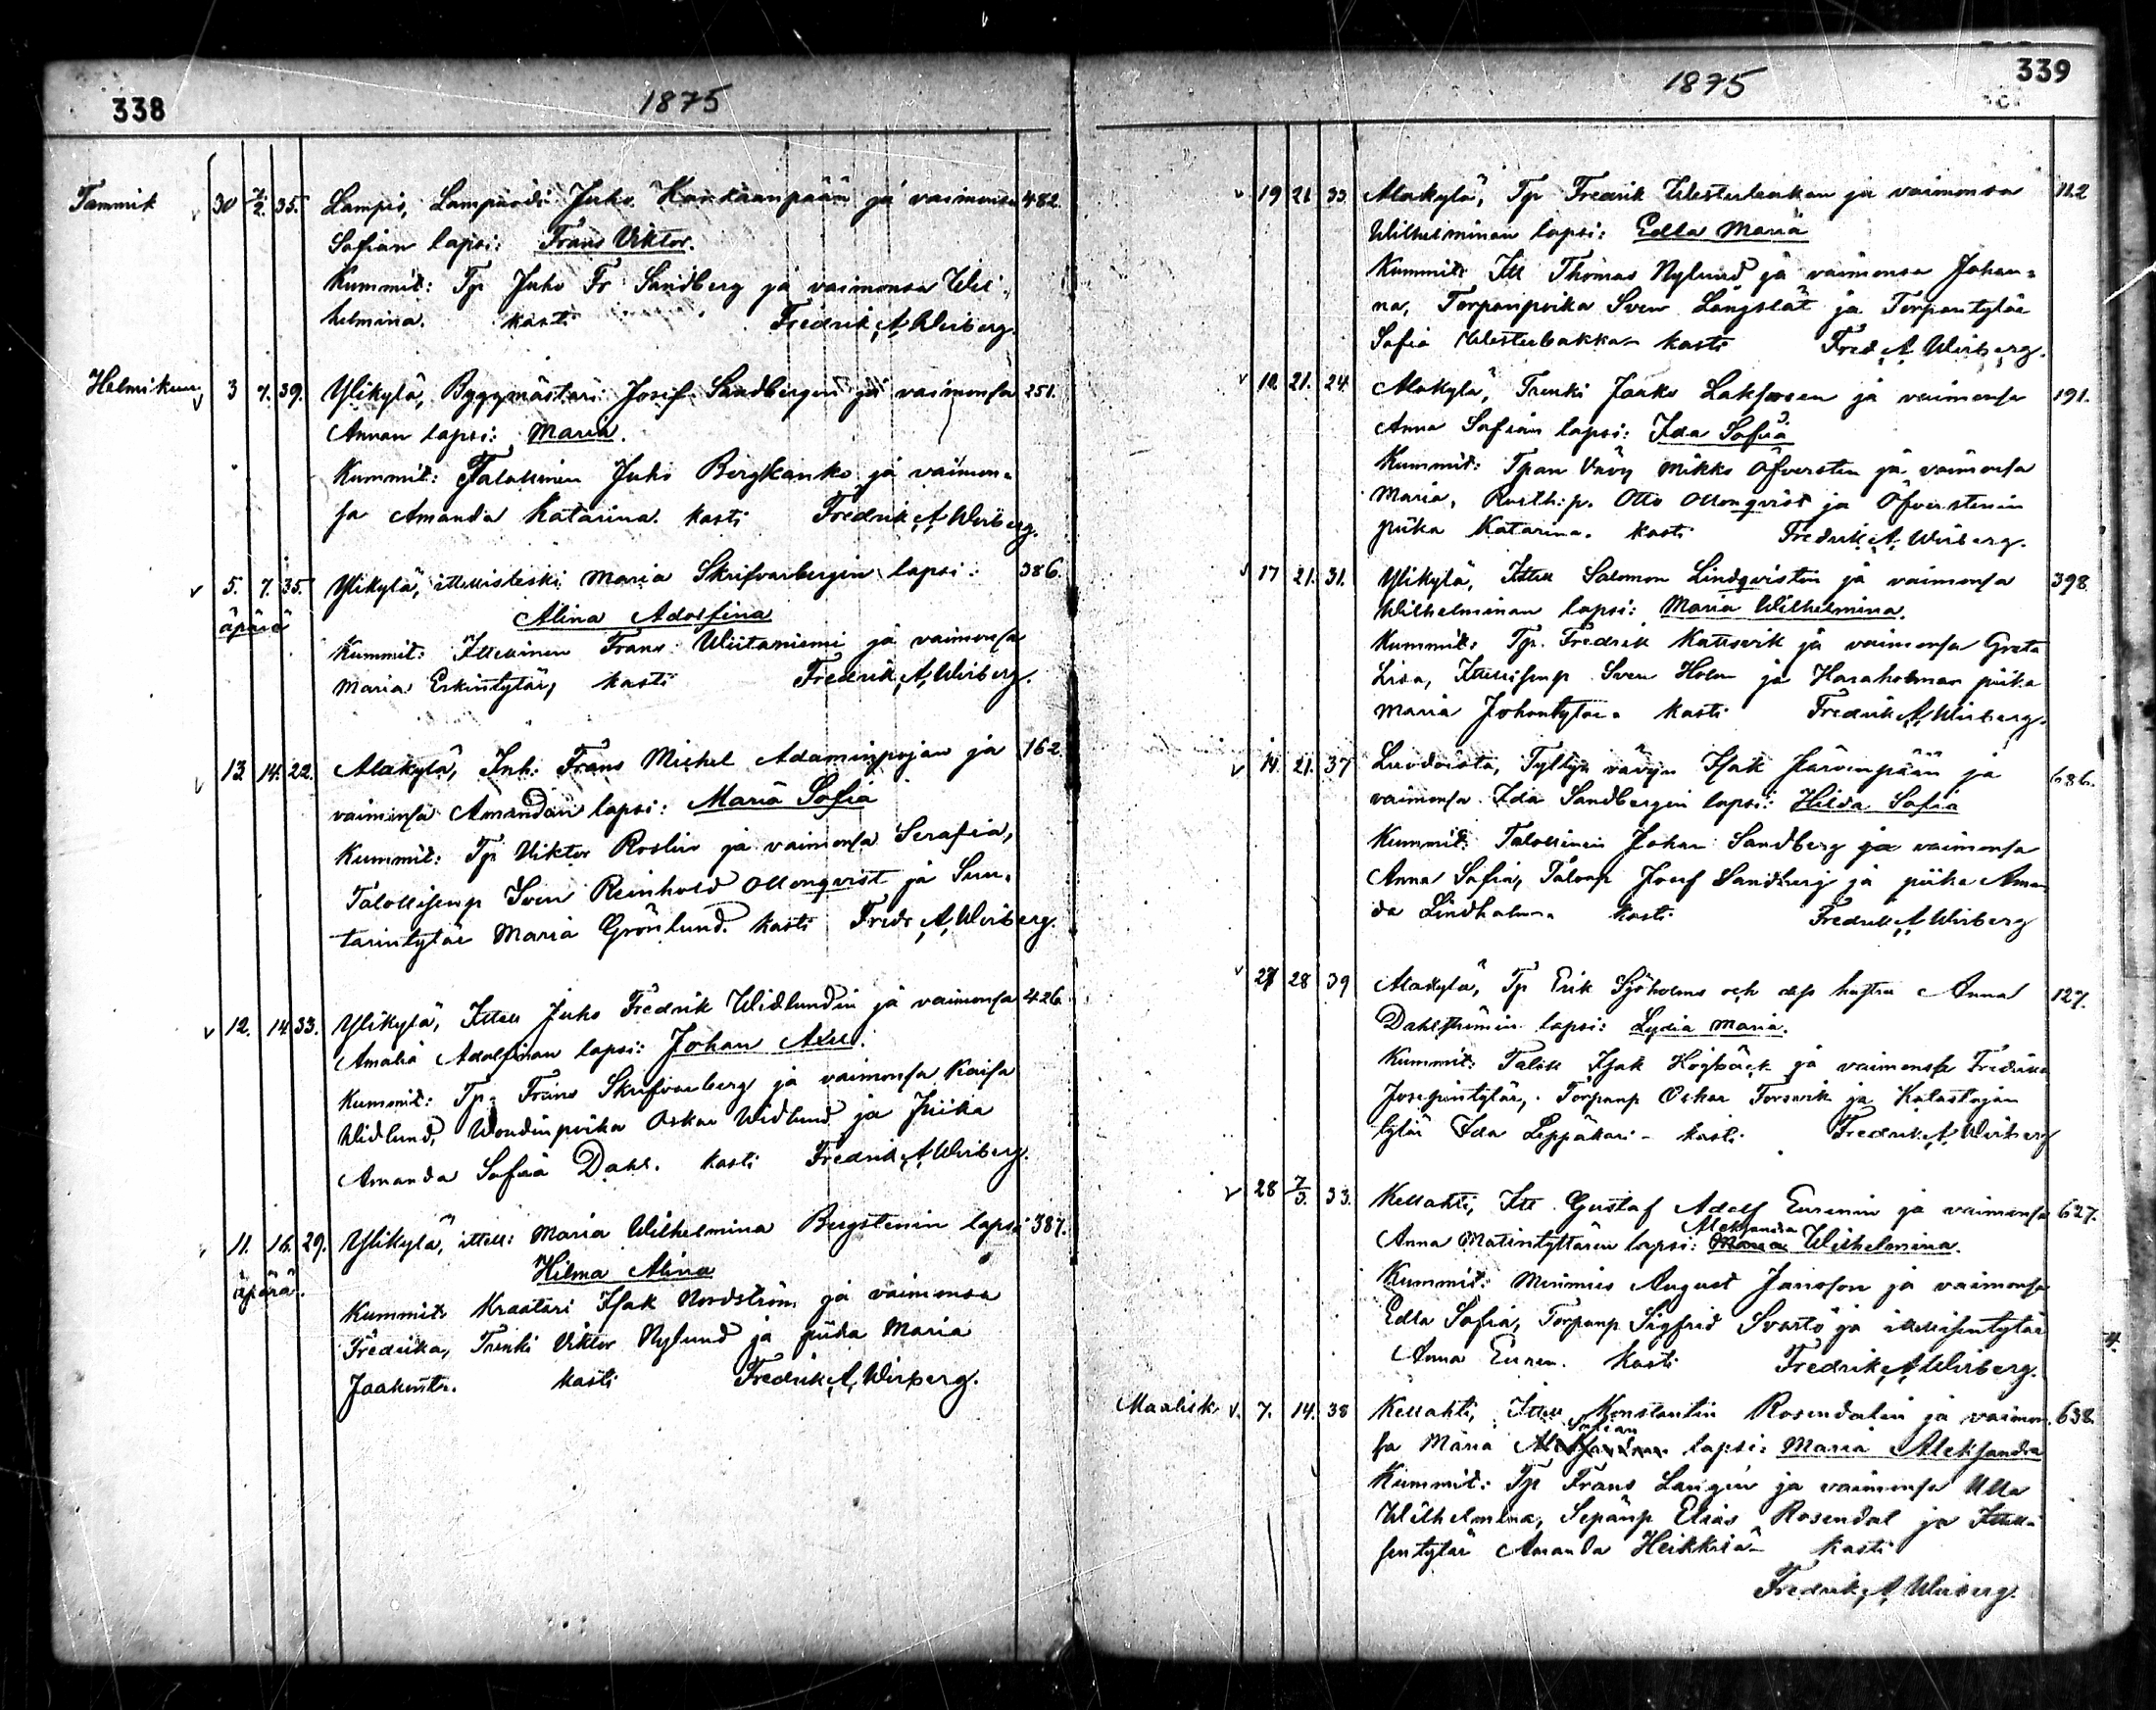 338
1875
Tammik 30 7/2. 35. Lampis, Lampuodi Juho Kankaanpään ja vaimonsa 482.
Sofian lapsi: Frans Viktor.
Kummit: Tp Juho Fr Sandberg ja vaimonsa Wil-
helmina. kasti Fredrik A. Wirberg.
Helmikuu 3 7. 39. Ylikylä, Byggmästari Josef Sandbergin ja vaimonsa 251.
Annan lapsi: Maria.
Kummit: Talollinen Juho Bergkanko ja vaimon-
sa Amanda Katarina. kasti Fredrik A. Wirberg.
5. 7. 35. Ylikylä, ittellisleski Maria Skrifvarbergin lapsi: 386.
äpärä Alina Adolfina
Kummit: Ittellinen Frans Wiitaniemi ja vaimonsa
Maria Erkintytär, kasti Fredrik A. Wirberg.
13 14. 22. Alakylä, Inh. Frans Michel Adaminpojan ja 162
vaimonsa Amandan lapsi: Maria Sofia
Kummit: Tp Viktor Roslin ja vaimonsa Serafia,
Talollisenp Sven Reinhold Ollonqvist ja Sun-
tarintytär Maria Grönlund. kasti Fredr A. Wirberg.
12. 14. 33. Ylikylä, Ittell Juho Fredrik Widlundin ja vaimonsa 426
Amalia Adolfinan lapsi: Johan Axel.
Kummit: Tp. Frans Skrifvarberg ja vaimonsa Kaisa
Widlund, Woudinpoika Oskar Widlund ja Piika
Amanda Sofia Dahl. kasti Fredrik A. Wirberg.
11. 16. 29. Ylikylä, ittell: Maria Wilhelmina Bergstenin lapsi 387.
äpärä. Hilma Alina
Kummit: Kraatari Isak Nordström ja vaimonsa
Fredrika, Trenki Viktor Nylund ja piika Maria
Jaakontr. kasti Fredrik A. Wirberg.
339
1875
19 21 33 Alakylä, Tp Fredrik Westerbakan ja vaimonsa 112
Wilhelminan lapsi: Edla Maria
Kummit: Itt Thomas Nylund ja vaimonsa Johan-
na, Torpanpoika Sven Långslät ja Torpantytär
Sofia Westerbakka. kasti Fred A. Wirberg.
21. 24 Alakylä, Trenki Jaako Laksosen ja vaimonsa 191.
Anna Sofian lapsi: Ida Sofia
Kummit: Tpan Vävy Mikko Öfversten ja vaimonsa
Maria, Rusth:p. Otto Ollonqvist ja Öfverstenin
piika Katarina. kasti Fredrik A. Wirberg.
17 21. 31. Ylikylä, Ittell Salomon Lindqvistin ja vaimonsa 398.
Wilhelminan lapsi: Maria Wilhelmina.
Kummit: Tp. Fredrik Kattsvik ja vaimonsa Greta
Lisa, Ittellisenp Sven Holm ja Haraholman piika
Maria Johantytär. kasti Fredrik A. Wirberg.
14. 21. 37 Luvdoista, Tyltyn vävyn Isak Järvenpään ja 686.
vaimonsa Ida Sandbergin lapsi: Hilda Sofia
Kummit: Talollinen Johan Sandberg ja vaimonsa
Anna Sofia, Talonp Josef Sandberg ja piika Aman
da Lindholm. kasti Fredrik A. Wirberg
27 28 39 Alakylä, Tp Erik Sjöholms och dess hustru Anna 127.
lapsi: Lydia Maria.
Kummit: Isak Högbäck ja vaimonsa Fredrika
Josepintytär, Torpanp Oskar Forsvik ja Kalastajan
tytär Ida Leppäkari - kasti Fredrik A. Wirberg
28 7/3. 33. Kellahti, Itt Gustaf Adolf Eurenin ja vaimonsa 627.
Aleksandra
Anna Matintyttären lapsi: Maria Wilhelmina.
Kummit: Merimies August Jansson ja vaimonsa
Edla Sofia, Torpanp Sigfrid Svartö ja ittellisentytär
Anna Euren. kasti Fredrik A. Wirberg.
Maalisk. 7. 14. 38 Kellahti, Ittell Konstantin Rosendalin ja vaimon- 638.
Sofian
sa Maria Aleksandran lapsi: Maria Aleksandra
Kummit: Tp Frans Langén ja vaimonsa Ulla
Wilhelmina, Sepänp Elias Rosendal ja Ittelli-
sentytär Amanda Heikkilä - kasti
Fredrik A. Wirberg.